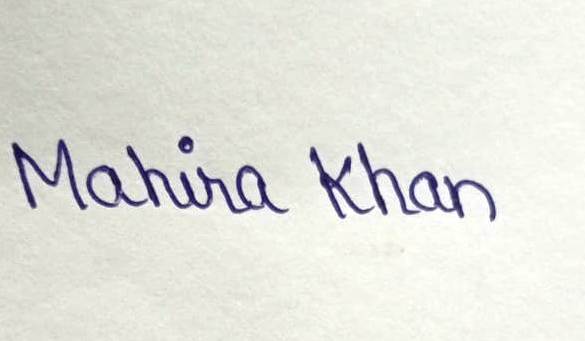 Mahira Khan